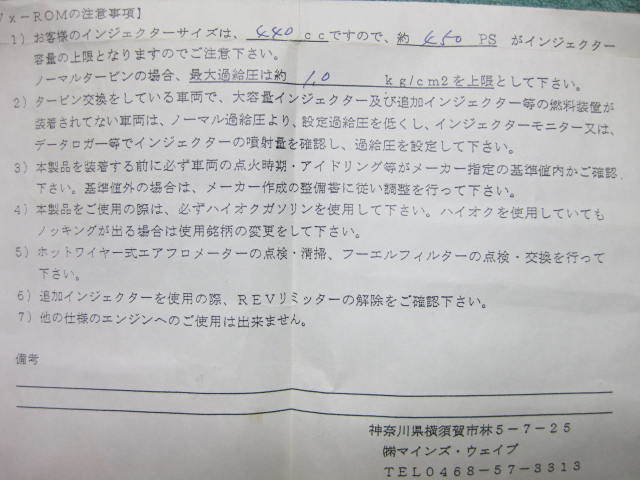 x－ROMの注意事項】
1）お客様のインジェクターサイズは、440ccですので、約450PSがインジェクター
容量の上限となりますのでご注意下さい。
ノーマルタービンの場合、最大過給圧は約1.0kg/cm2を上限として下さい。
2）タービン交換をしている車両で、大容量インジェクター及び追加インジェクター等の燃料装置が
装着されてない車両は、ノーマル過給圧より、設定過給圧を低くし、インジェクターモニター又は、
データロガー等でインジェクターの噴射量を確認し、過給圧を設定して下さい。
3）本製品を装着する前に必ず車両の点火時期・アイドリング等がメーカー指定の基準値内かご確認
下さい。基準値外の場合は、メーカー作成の整備書に従い調整を行って下さい。
4）本製品をご使用の際は、必ずハイオクガソリンを使用して下さい。ハイオクを使用していても
ノッキングが出る場合は使用銘柄の変更をして下さい。
5）ホットワイヤー式エアフロメーターの点検・清掃、フーエルフィルターの点検・交換を行って
下さい。
6）追加インジェクターを使用の際、REVリミッターの解除をご確認下さい。
7）他の仕様のエンジンへのご使用は出来ません。
備考
神奈川県横須賀市林5－7－25
㈱マインズ・ウェイブ
TEL0468－57－3313